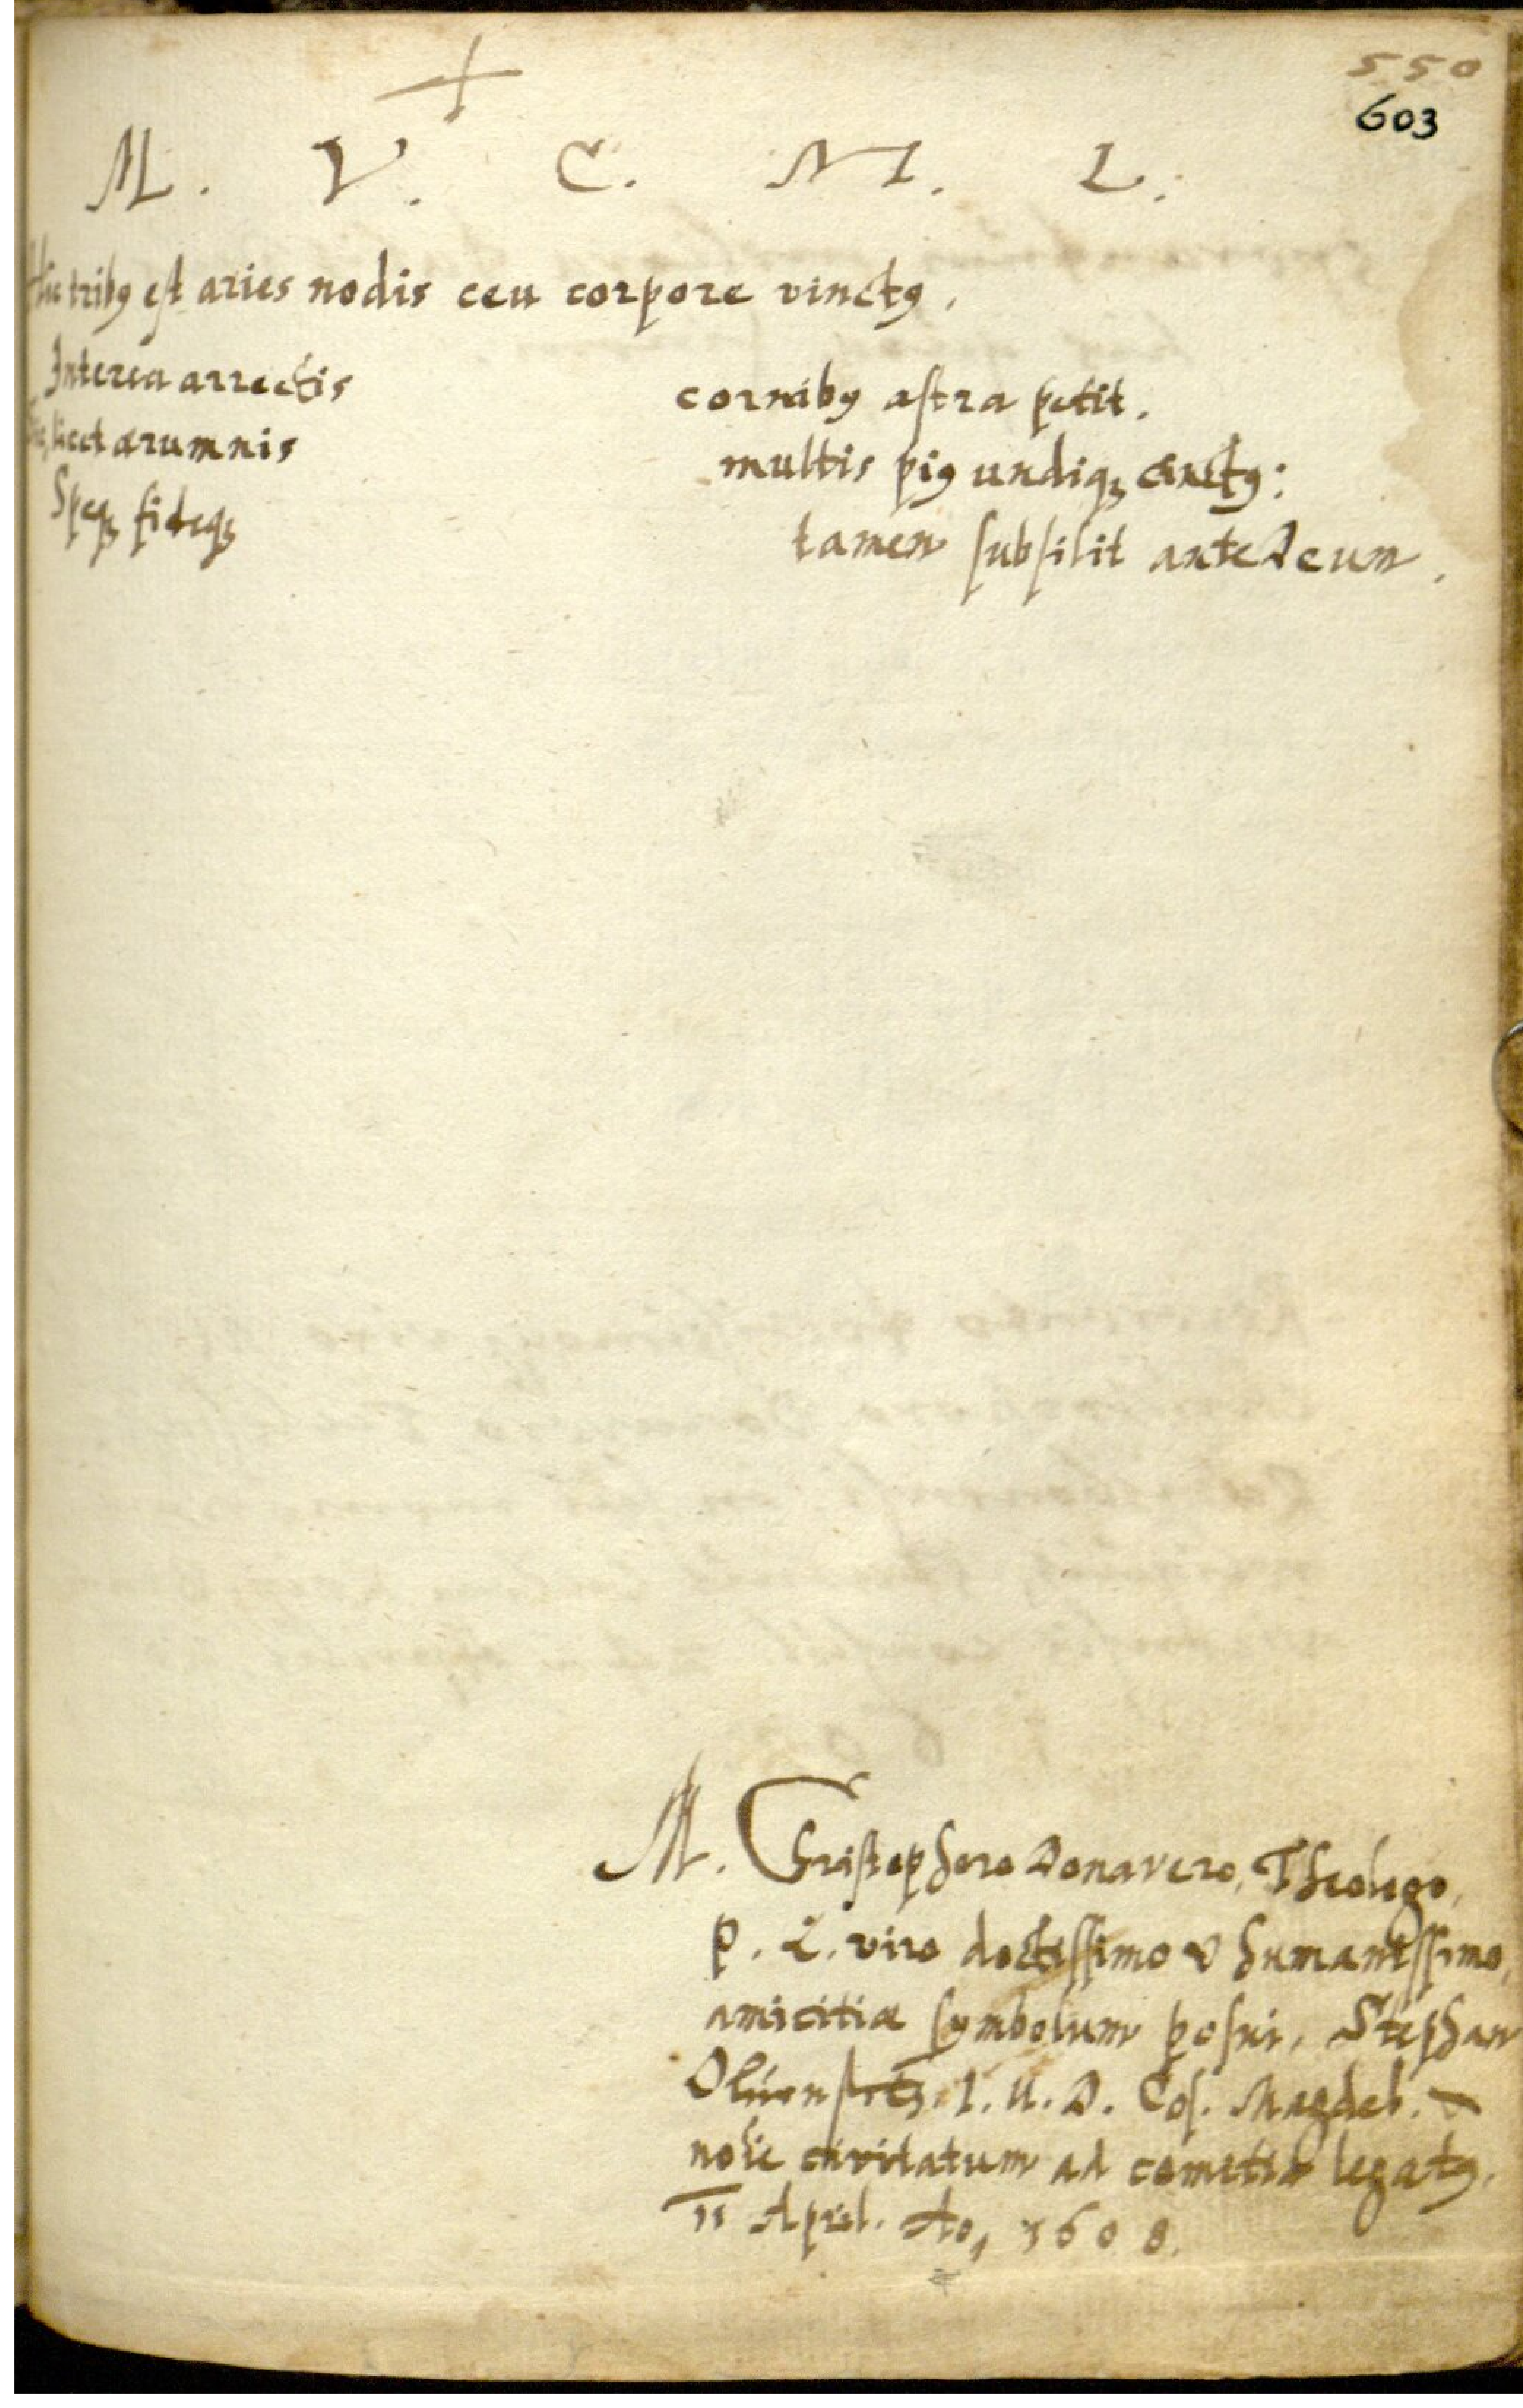 550
603
M. V. C. M. L.
Hic tribꝰ est aries nodis ceu corpore vinctꝰ,
Interea arrectis cornibꝰ astra petit.
licet ærumnis multis piꝰ undiqꝫ cinctꝰ:
Speqꝫ fideqꝫ tamen subsilit ante Deum.
M. Christophoro Donavero, Theologo,
p. L. viro doctissimo & humanissimo,
amicitiæ symbolum posui, Stephan
I. U. D. Cos. Magdeb.
noie civitatum ad comitia legatꝰ.
11 April. Ao, 1608.